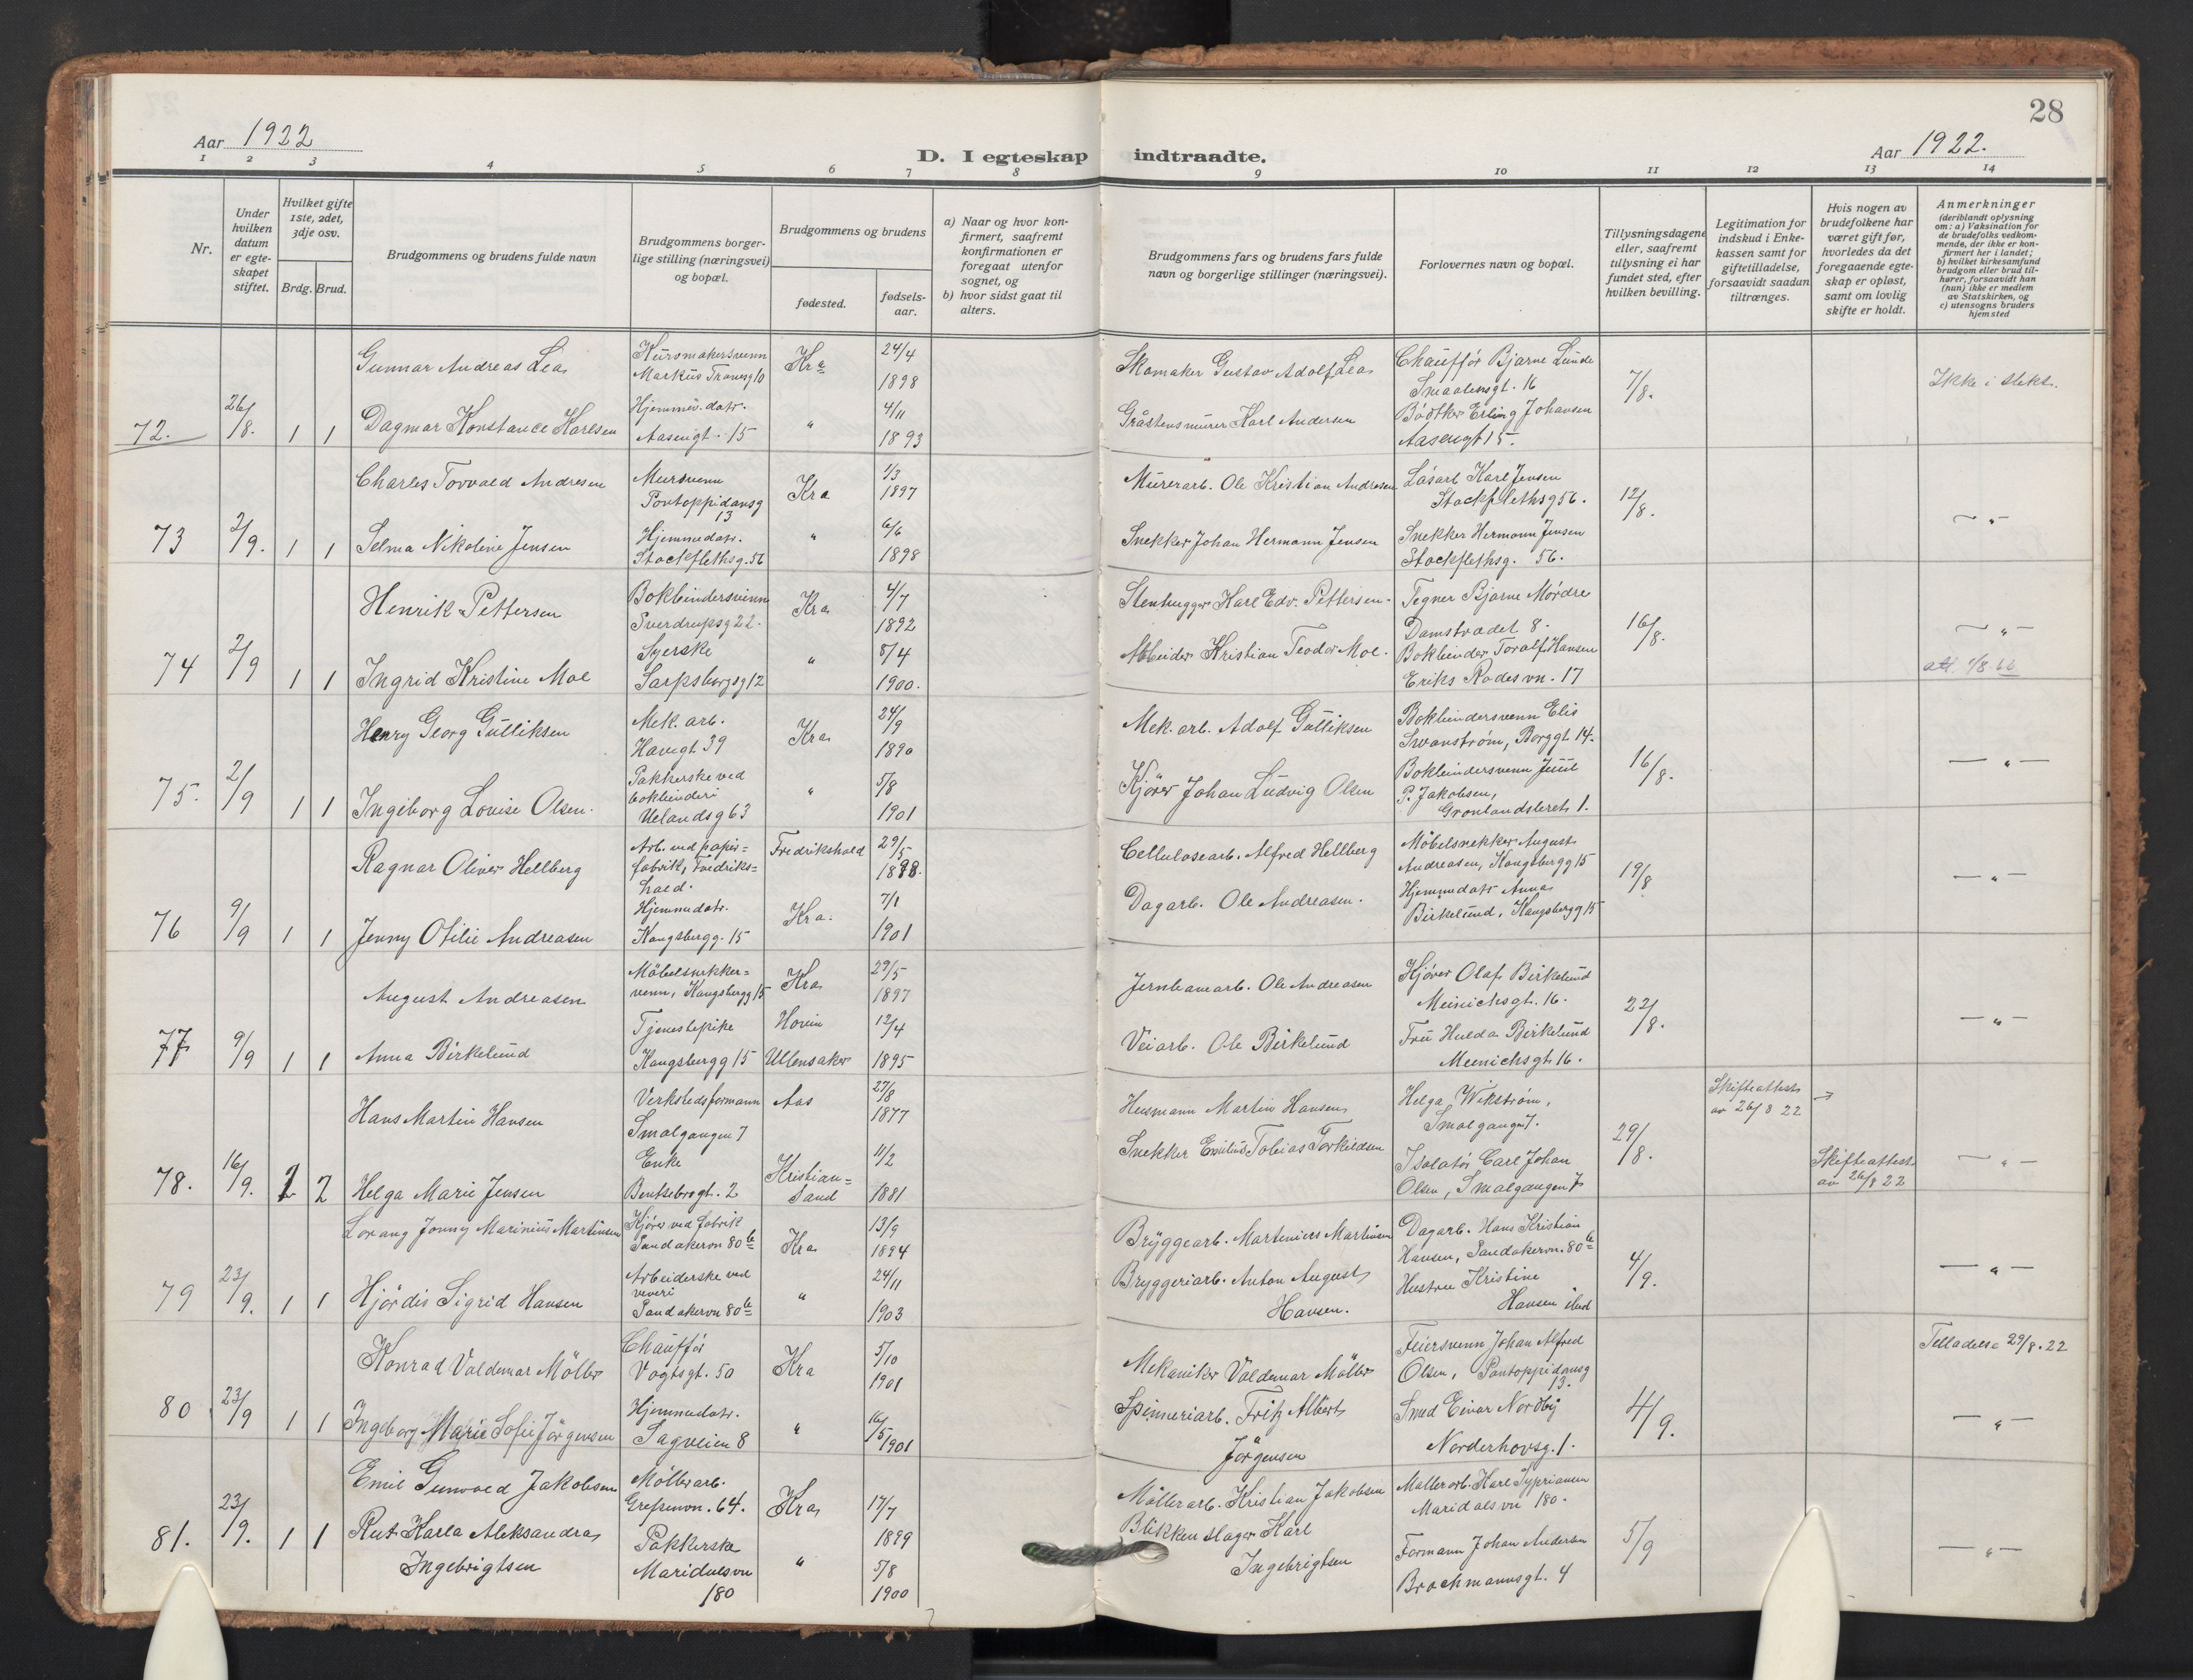 28
Aar 1922
D. I egteskap indtraadte.
Aar 1922.
1 2 3 4 5 6 7 8 9 10 11 12 13 14
Nr.
Under hvilken datum er egte-skapet stiftet.
Hvilket gifte 1ste, 2det, 3dje osv.
Brdg. Brud.
Brudgommens og brudens fulde navn
Brudgommens borger-
lige stilling (næringsvei)
og bopæl.
Brudgommens og brudens
fødested.
fødsels-
aar.
a) Naar og hvor kon-
firmert, saafremt
konfirmationen er
foregaat utenfor
sognet, og
b) hvor sidst gaat til
alters.
Brudgommens fars og brudens fars fulde
navn og borgerlige stillinger (næringsvei).
Forlovernes navn og bopæl.
Tillysningsdagene
eller, saafremt
tillysning ei har
fundet sted, efter
hvilken bevilling.
Legitimation for
indskud i Enke-
kassen samt for
giftetilladelse,
forsaavidt saadan
tiltrænges.
Hvis nogen av
brudefolkene har
været gift før,
hvorledes da det
foregaaende egte-
skap er opløst,
samt om lovlig
skifte er holdt.
Anmerkninger
(deriblandt oplysning
om: a) Vaksination for
de brudefolks vedkom-
mende, der ikke er kon-
firmert her i landet;
b) hvilket kirkesamfund
brudgom eller brud til-
hører, forsaavidt han
(hun) ikke er medlem
av Statskirken, og
c) utensogns bruders
hjemsted
72. 26/8. 1 1
Gunnar Andreas Lea
Kursmakersvenn
Markus Tranesg 10
Kra
24/4
1898
Skomaker Gustav Adolf Lea
Chauffør Bjarne Lunde
Smaalensgt. 16
7/8.
Ikke i slekt.
Dagmar Konstance Karlsen
Hjemmev. datr.
Aasengt. 15
"
4/11
1893
Gråstensmurer Karl Andersen
Bødtker Erling Johansen
Aasengt 15.
73 2/9. 1 1
Charles Torvald Andresen
Mursvenn
Pontoppidansg
13
Kra
1/3
1897
Murerarb. Ole Kristian Andresen
Låsarb Karl Jensen
Stockflethsg 56.
12/8.
— " —
Selma Nikoline Jensen
Hjemmedatr.
Stockflethsg. 56
"
6/6
1898
Snekker Johan Hermann Jensen
Snekker Hermann Jensen
Stockflethsg. 56.
74 2/9 1 1
Henrik Pettersen
Bokbindersvenn
Sverdrupsg 22.
Kra
4/7
1892
Stenhugger Karl Edv. Pettersen.
Tegner Bjarne Mørdre
Damstradet 8.
16/8.
— " —
Ingrid Kristine Moe
Syerske
Sarpsborgsg 12
"
8/4
1900.
Arbeider Kristian Teodor Moe.
Bokbinder Toralf Hansen
Eriks Rodes vn. 17
75. 2/9 1 1
Henry Georg Gulliksen
Mek. arb.
Havegt 39
Kra
24/9
1890
Mek. arb. Adolf Gulliksen
Bokbindersvenn Elis
Svanstrøm, Borggt 14.
16/8.
— " —
Ingeborg Lovise Olsen.
Pakkerske ved
bokbinderi
Uelandsg 63
"
5/8
1901
Kjører Johan Ludvig Olsen
Bokbindersvenn Juul
P. Jakobsen,
Grønlandsleret 1.
76 9/9 1 1
Ragnar Oliver Hellberg
Arb. ved papir=
fabrik, Fredriks=
hald.
Fredrikshald
29/5
1898.
Cellulosearb. Alfred Hellberg
Møbelsnekker August
Andreasen, Kongsbergg 15
19/8
— " —
Jenny Otilie Andreasen
Hjemmedatr.
Kongsbergg. 15
Kra.
7/1
1901
Dagarb. Ole Andreasen.
Hjemmedatr Anna
Birkelund, Kongsbergg 15
77 9/9 1 1
August Andreasen
Møbelsnekker=
svenn, Kongsbergg 15
Kra
29/5
1897
Jernbanearb. Ole Andreasen
Kjører Olaf Birkelund
Meinichsgt. 16.
22/8.
— " —
Anna Birkelund
Tjenestepike
Kongsbergg 15
Hovin
Ullensaker
12/4
1895
Veiarb. Ole Birkelund
Fru Hulda Birkelund
Meinichsgt 16.
78. 16/9. 2 2
Hans Martin Hansen
Verkstedsformann
Smalgangen 7
Aas
27/8
1877
Husmann Martin Hansen
Helga Wikstrøm,
Smalgangen 7.
29/8.
Skifteattest
av 26/8 22 →
Helga Marie Jensen
Enke
Bentsebrogt. 2
Kristian=
sand
11/2
1881
Snekker Emilius Tobias Torkildsen
Isolatør Carl Johan
Olsen, Smalgangen 7
Skifteattest
av 26/8 22
— " —
79 23/9. 1 1
Lorang Jonny Marinius Martinsen
Kjører ved fabrik
Sandakervn 80 b
Kra
13/9
1894
Bryggearb. Martenius Martinsen
Dagarb. Hans Kristian
Hansen, Sandakervn. 80 b
4/9.
— " —
Hjørdis Sigrid Hansen
Arbeiderske ved
veveri
Sandakervn 80 b
"
24/11
1903
Bryggeriarb. Anton August
Hansen.
Hustru Kristine
Hansen ibid
80 23/9 1 1
Konrad Valdemar Møller
Chauffør
Vogtsgt. 50
Kra
5/10
1901
Mekaniker Valdemar Møller
Feiersvenn Johan Alfred
Olsen, Pontoppidansg
13.
4/9.
Tilladelse 29/8.22
Ingeborg Marie Sofie Jørgensen
Hjemmedatr.
Sagveien 8
"
16/5 1901
Spinneriarb. Fritz Albert
Jørgensen
Smed Einar Nordby
Norderhovsg. 1.
— " —
81. 23/9. 1 1
Emil Gunvald Jakobsen
Møllerarb.
Grefsenvn. 64.
Kra
17/7
1899
Møllerarb. Kristian Jakobsen
Møllerarb. Karl Syprianen
Maridalsvn 180.
5/9
— " —
Rut Karla Aleksandra
Ingebrigtsen
Pakkerske
Maridalsvn
180
"
5/8
1900
Blikkenslager Karl
Ingebrigtsen
Formann Johan Andersen
Brochmannsgt. 4